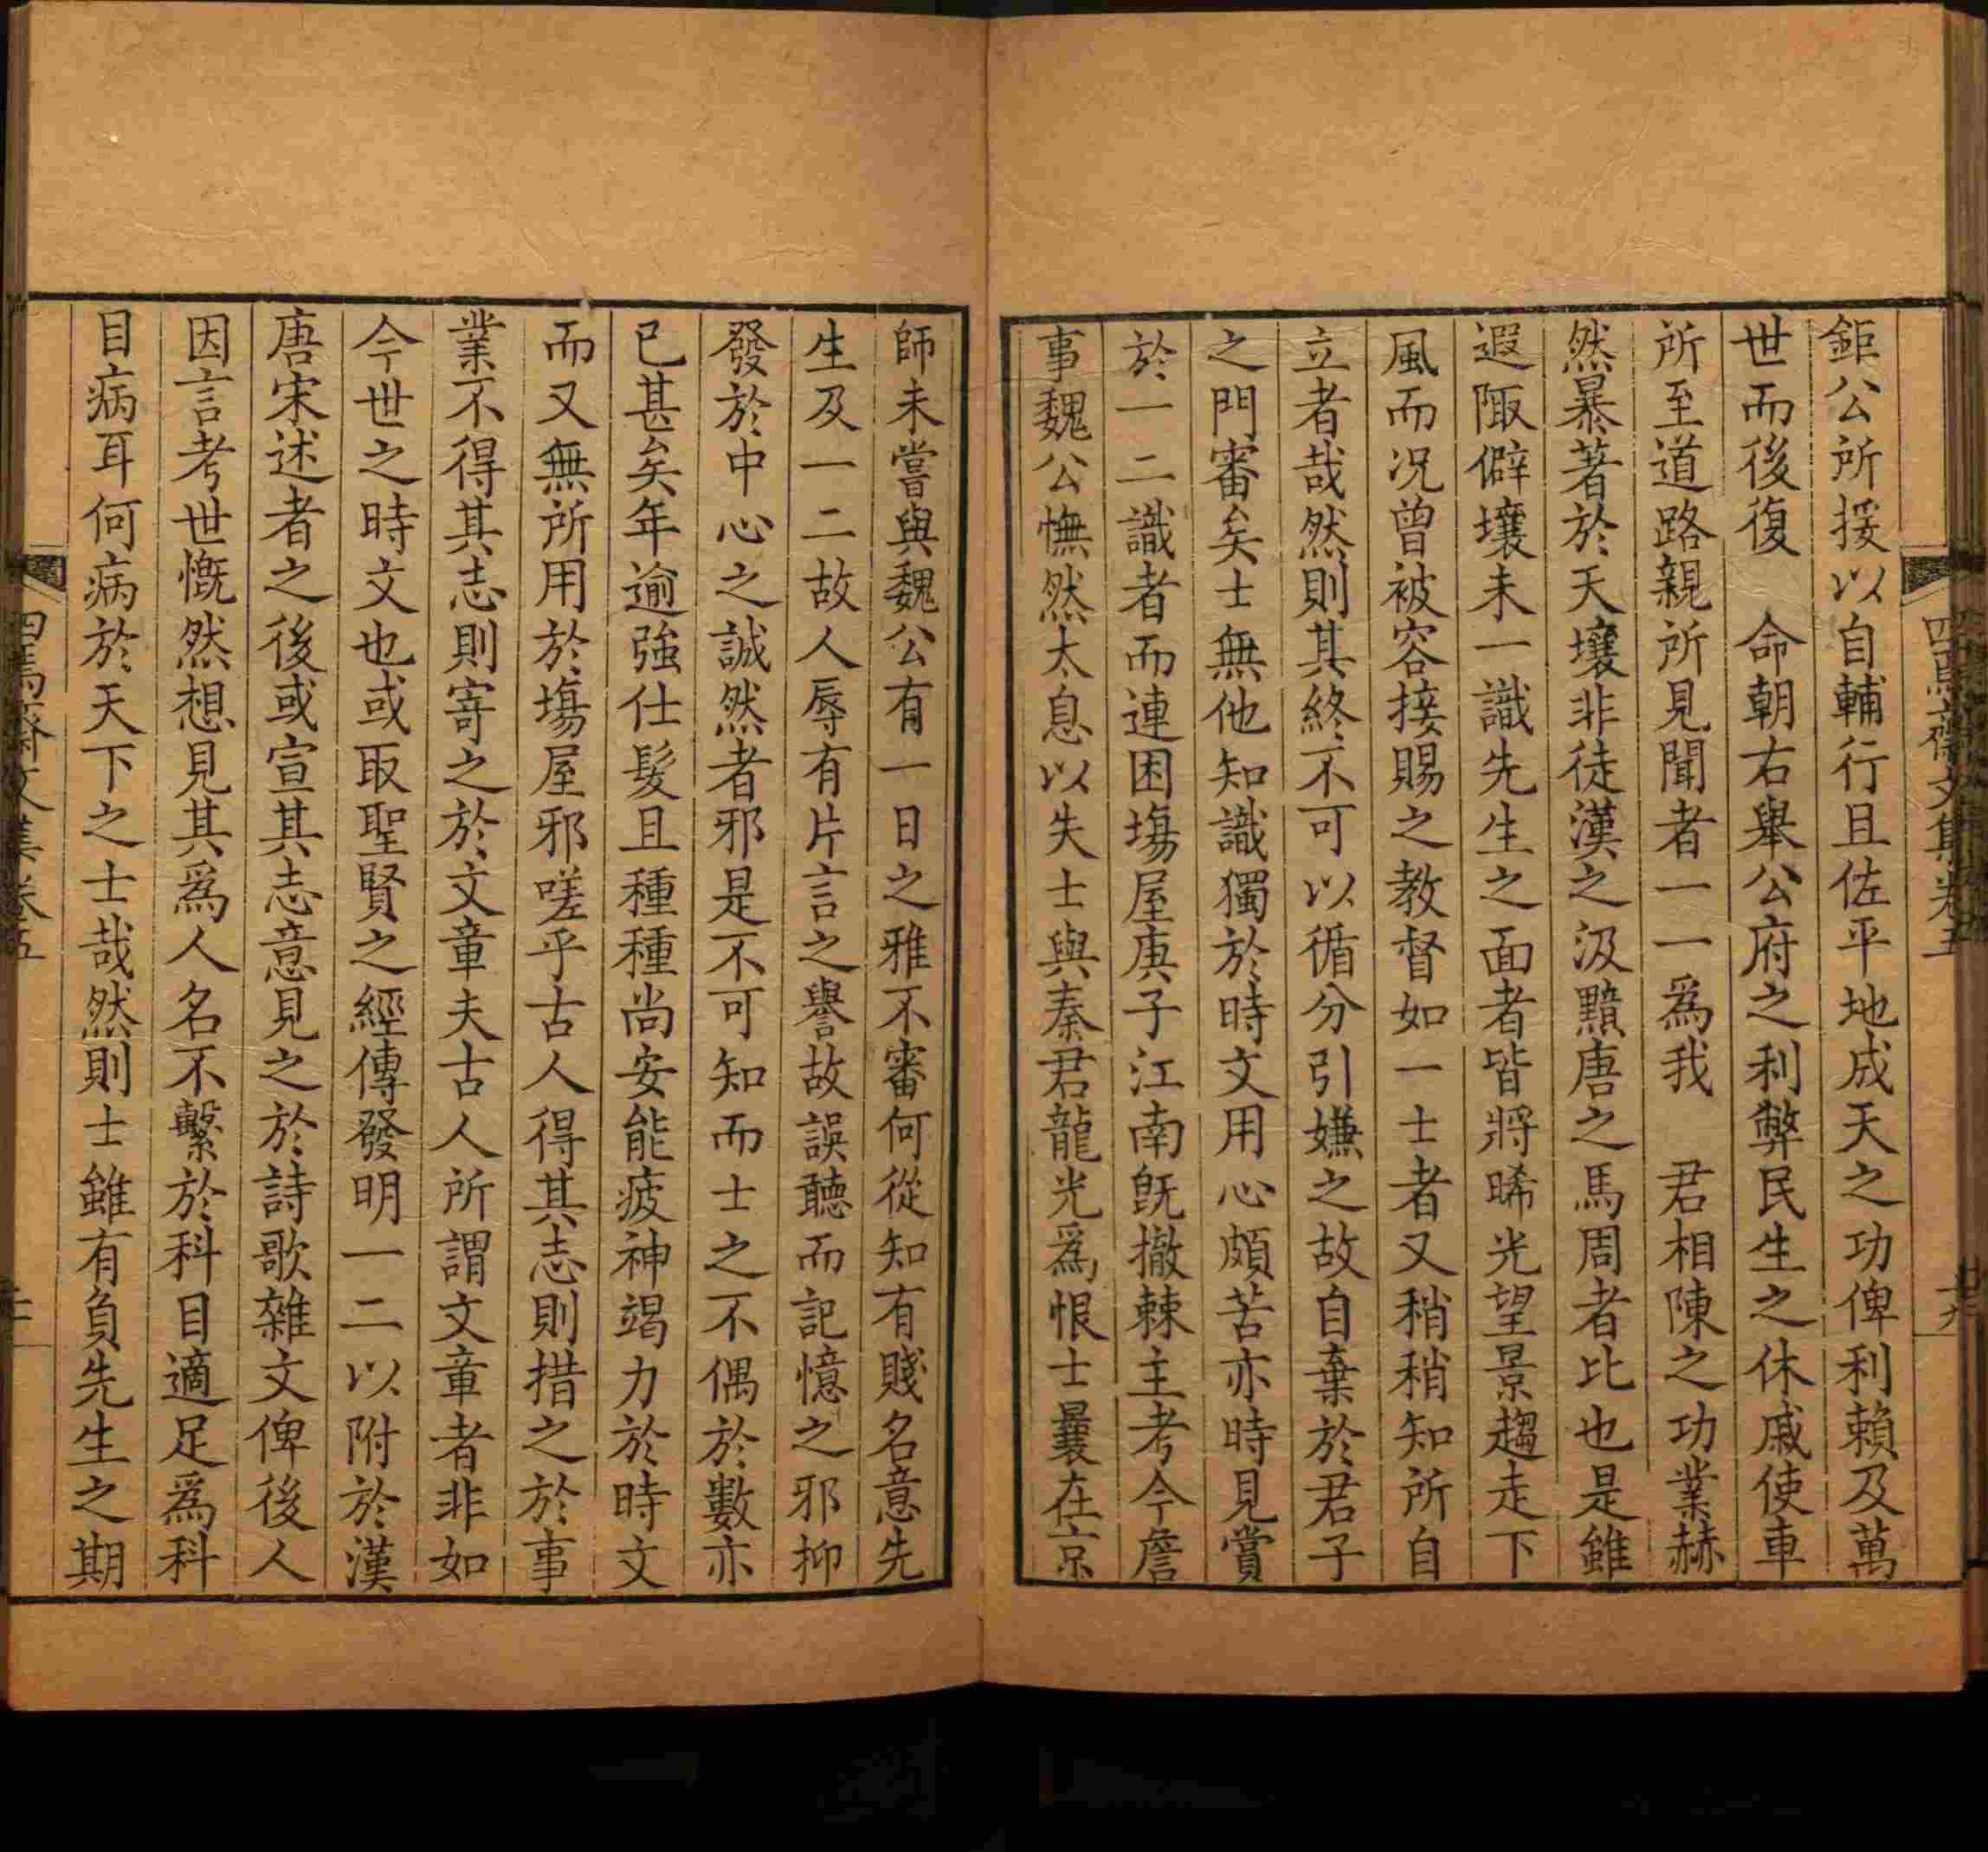 鉅公所援以自輔行且佐平地成天之功俾利賴及萬
世而後復　命朝右舉公府之利弊民生之休戚使車
所至道路親所見聞者一一爲我　君相陳之功業赫
然暴著於天壤非徒漢之汲黯唐之馬周者比也是雖
遐陬僻壤未一識先生之面者皆將晞光望景趨走下
風而况曾被容接賜之教督如一士者又稍稍知所自
立者哉然則其終不可以循分引嫌之故自棄於君子
之門審矣士無他知識獨於時文用心頗苦亦時見賞
於一二識者而連困塲屋庚子江南旣撤棘主考今詹
事魏公憮然太息以失士與秦君龍光爲恨士曩在京
師未嘗與魏公有一日之雅不審何從知有賤名意先
生及一二故人辱有片言之譽故誤聽而記憶之邪抑
發於中心之誠然者邪是不可知而士之不偶於數亦
已甚矣年逾強仕髮且種種尚安能疲神竭力於時文
而又無所用於塲屋邪嗟乎古人得其志則措之於事
業不得其志則寄之於文章夫古人所謂文章者非如
今世之時文也或取聖賢之經傳發明一二以附於漢
唐宋述者之後或宣其志意見之於詩歌雜文俾後人
因言考世慨然想見其爲人名不繫於科目適足爲科
目病耳何病於天下之士哉然則士雖有負先生之期
四焉齋文集卷五